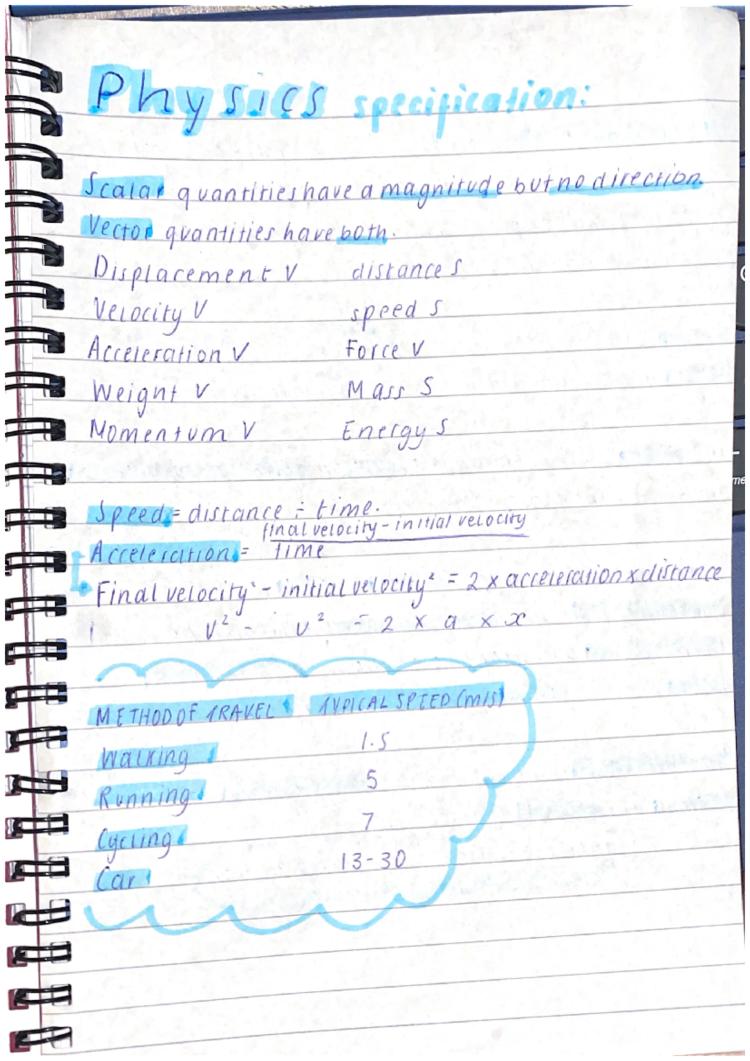 Physics specification:
Scalar quantities have a magnitude but no direction.
Vector quantities have both.
Displacement V distance S
Velocity V speed S
Acceleration V Force V
Weight V Mass S
Momentum V Energy S
Speed = distance ÷ time.
final velocity - initial velocity
Acceleration = time
Final velocity² - initial velocity² = 2 x acceleration x distance
v² - u² = 2 x a x x
METHOD OF TRAVEL TYPICAL SPEED (m/s)
Walking 1.5
Running 5
Cycling 7
Car 13-30